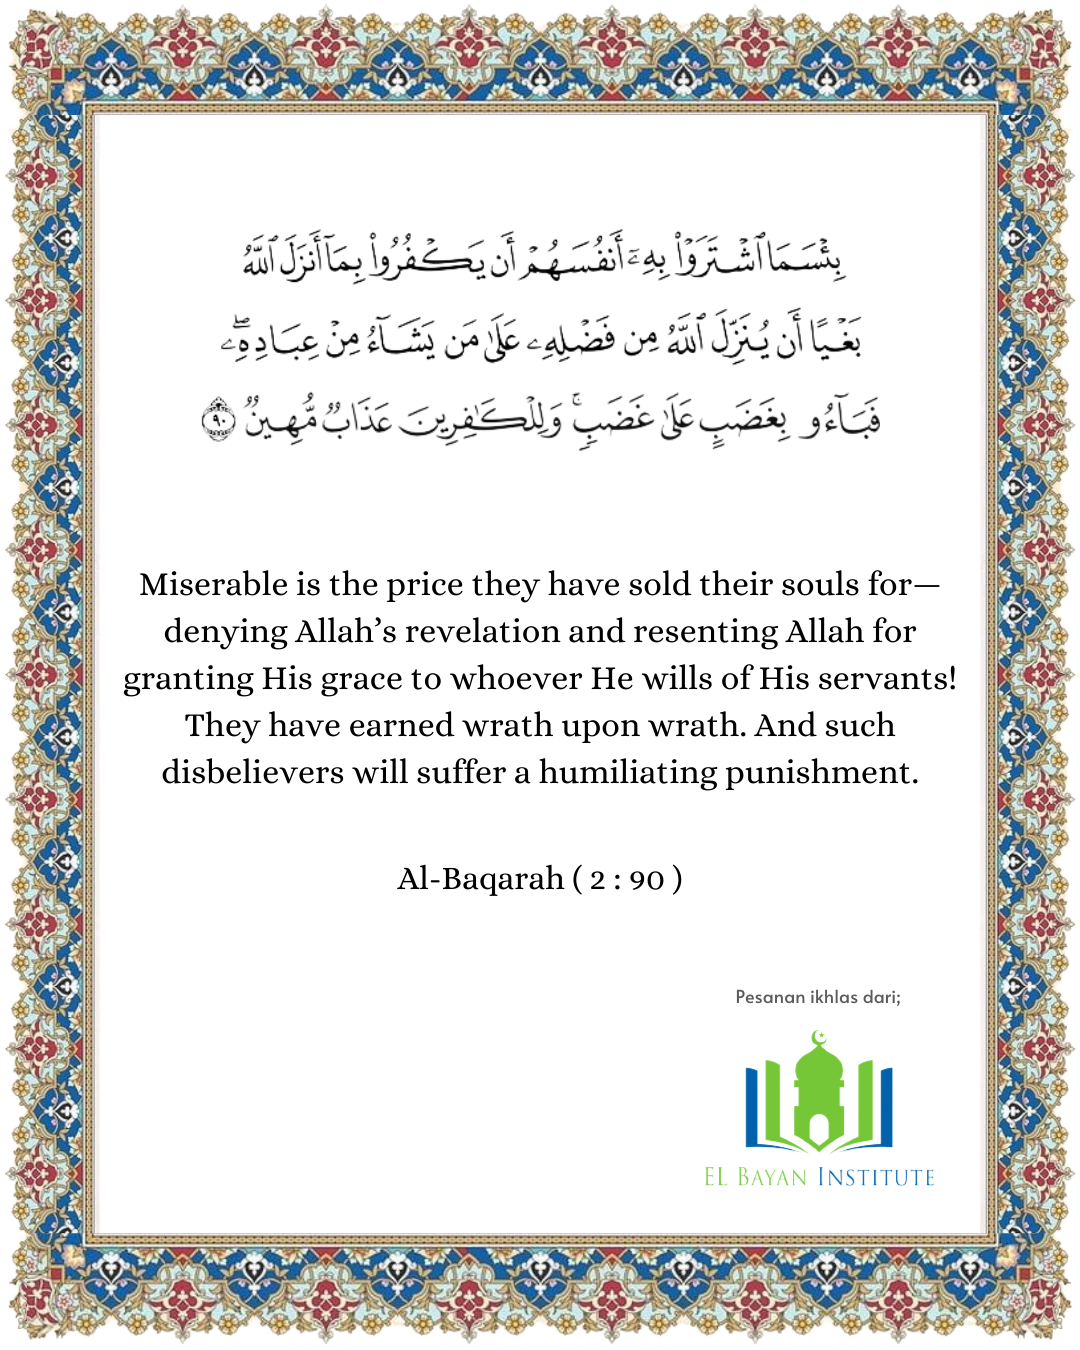 بِئْسَمَا ٱشْتَرَوْا۟ بِهِۦٓ أَنفُسَهُمْ أَن يَكْفُرُوا۟ بِمَآ أَنزَلَ ٱللَّهُ
بَغْيًا أَن يُنَزِّلَ ٱللَّهُ مِن فَضْلِهِۦ عَلَىٰ مَن يَشَآءُ مِنْ عِبَادِهِۦۖ
فَبَآءُو بِغَضَبٍ عَلَىٰ غَضَبٍۚ وَلِلْكَـٰفِرِينَ عَذَابٌ مُّهِينٌ ٩٠
Miserable is the price they have sold their souls for—
denying Allah’s revelation and resenting Allah for
granting His grace to whoever He wills of His servants!
They have earned wrath upon wrath. And such
disbelievers will suffer a humiliating punishment.
Al-Baqarah ( 2 : 90 )
Pesanan ikhlas dari;
EL BAYAN INSTITUTE